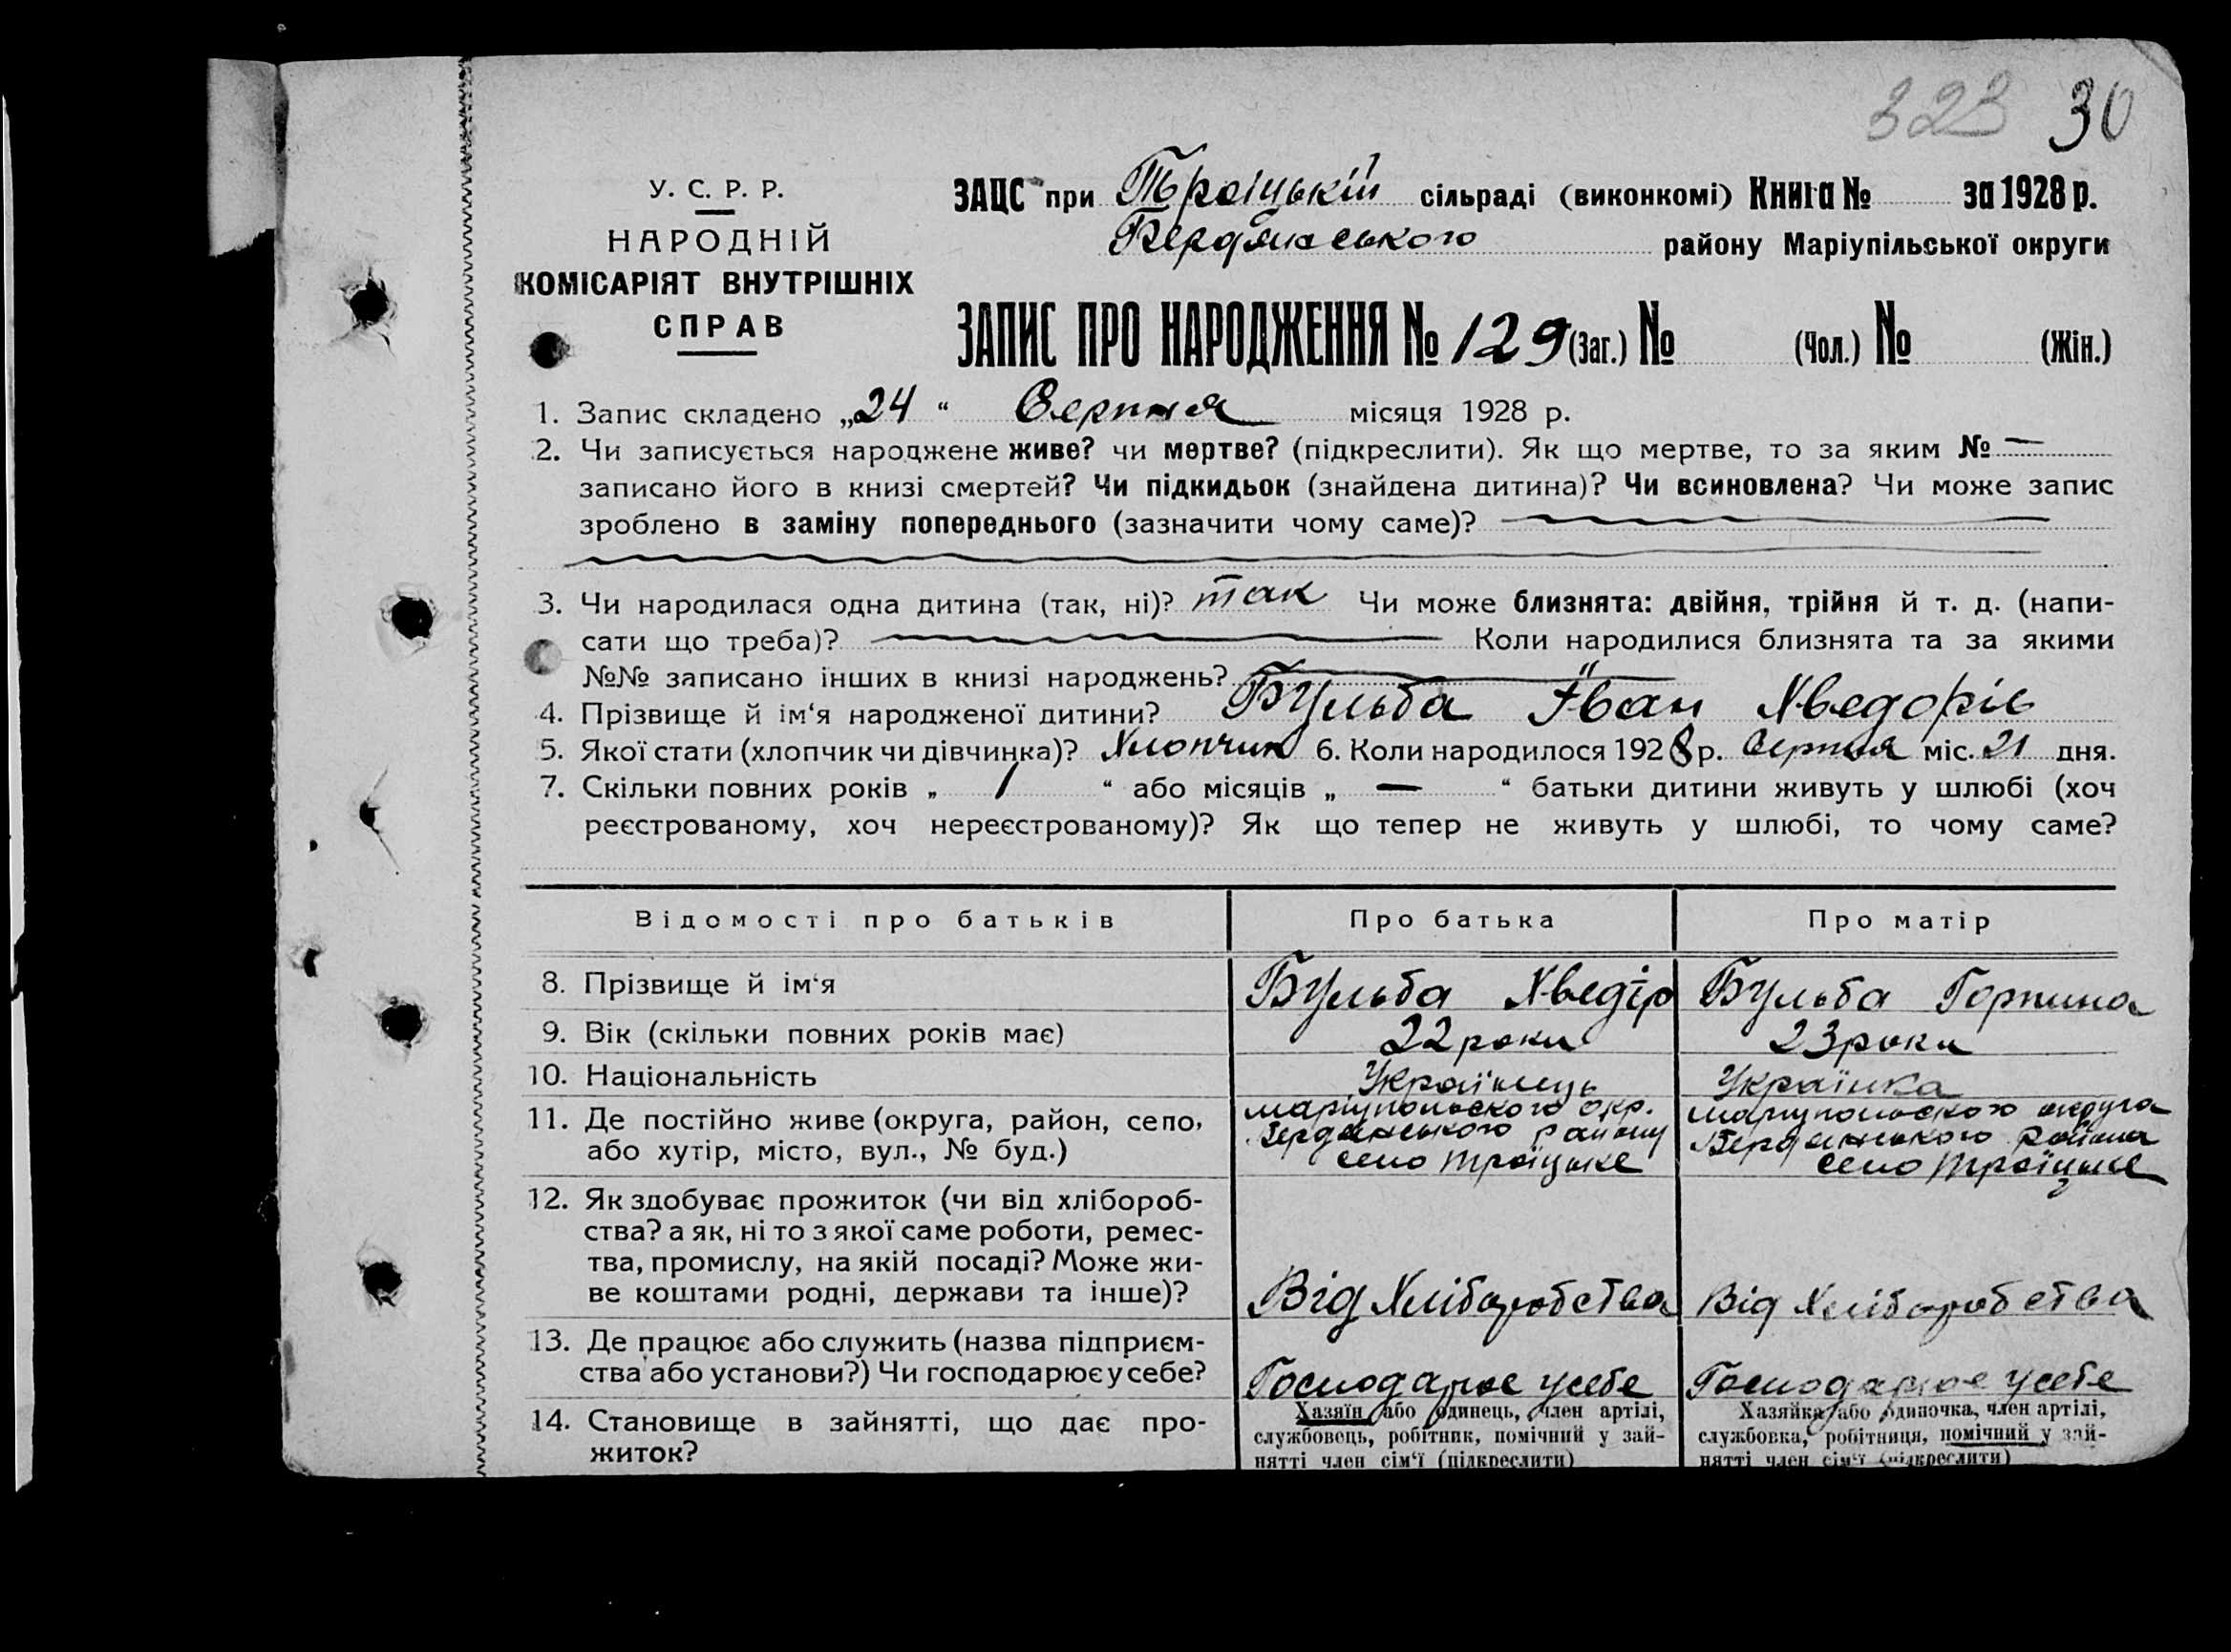 323 30
У. С. Р. Р.
НАРОДНІЙ
КОМІСАРІЯТ ВНУТРІШНІХ
СПРАВ
ЗАЦС при Троіцькій сільраді (виконкомі) Книга № за 1928 р.
Бердянського району Маріупільської округи
ЗАПИС ПРО НАРОДЖЕННЯ № 129 (Заг.) № (Чол.) № (Жін.)
1. Запис складено „24“ Серпня місяця 1928 р.
2. Чи записується народжене живе? чи мертве? (підкреслити). Як що мертве, то за яким № —
записано його в книзі смертей? Чи підкидьок (знайдена дитина)? Чи всиновлена? Чи може запис
зроблено в заміну попереднього (зазначити чому саме)?
3. Чи народилася одна дитина (так, ні)? так Чи може близнята: двійня, трійня й т. д. (напи-
сати що треба)? Коли народилися близнята та за якими
№№ записано інших в книзі народжень?
4. Прізвище й ім‘я народженої дитини? Бульба Іван Хведорів
5. Якої стати (хлопчик чи дівчинка)? Хлопчик 6. Коли народилося 1928 р. Серпня міс. 21 дня.
7. Скільки повних років „ 1 “ або місяців „ — “ батьки дитини живуть у шлюбі (хоч
реєстрованому, хоч нереєстрованому)? Як що тепер не живуть у шлюбі, то чому саме?
Відомості про батьків Про батька Про матір
8. Прізвище й ім‘я Бульба Хведір Бульба Горпина
9. Вік (скільки повних років має) 22 роки 23 роки
10. Національність Українець Українка
11. Де постійно живе (округа, район, село, маріупольского окр. маріупольского округа
або хутір, місто, вул., № буд.) Бердянського району Бердянського района
село Троїцьке село Троїцьке
12. Як здобуває прожиток (чи від хлібороб-
ства? а як, ні то з якої саме роботи, ремес-
тва, промислу, на якій посаді? Може жи-
ве коштами родні, держави та інше)? Від Хліборобства Від Хліборобства
13. Де працює або служить (назва підприєм-
ства або установи?) Чи господарює у себе? Господарює у себе Господарює у себе
14. Становище в зайнятті, що дає про-
житок?
Хазяїн або одинець, член артілі,
службовець, робітник, помічний у зай-
нятті член сім‘ї (підкреслити)
Хазяйка або одиночка, член артілі,
службовка, робітниця, помічний у зай-
нятті член сім‘ї (підкреслити)